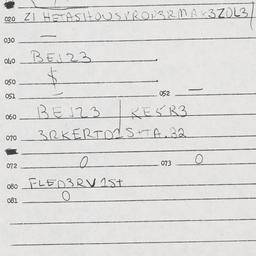 020 ZI HETASHOUSVRON3RMA-3ZOL3
030 —
040 BE123
050 $
051 —
052 —
060 BE123 / KESR3
070 3RKERTO1S-TA.32
072 0 073 0
080 FLEN3RV1St
081 0